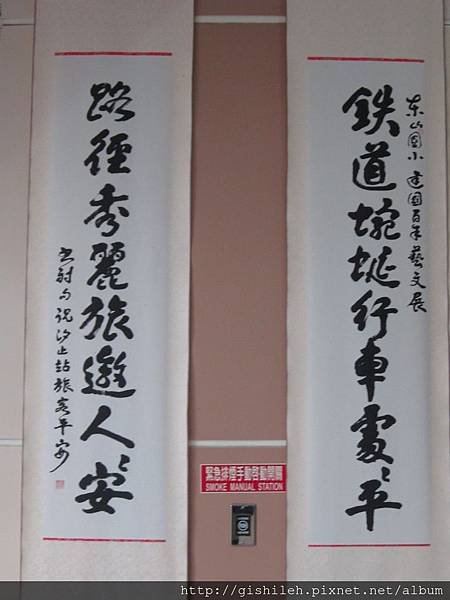 東山國小 建國百年藝文展
鉄道蜿蜒行車處々平
路徑秀麗旅邀人々安
書対句祝汐止站旅客平安
緊急排煙手動啓動開關
SMOKE MANUAL STATION
http://gishileh.pixnet.net/album